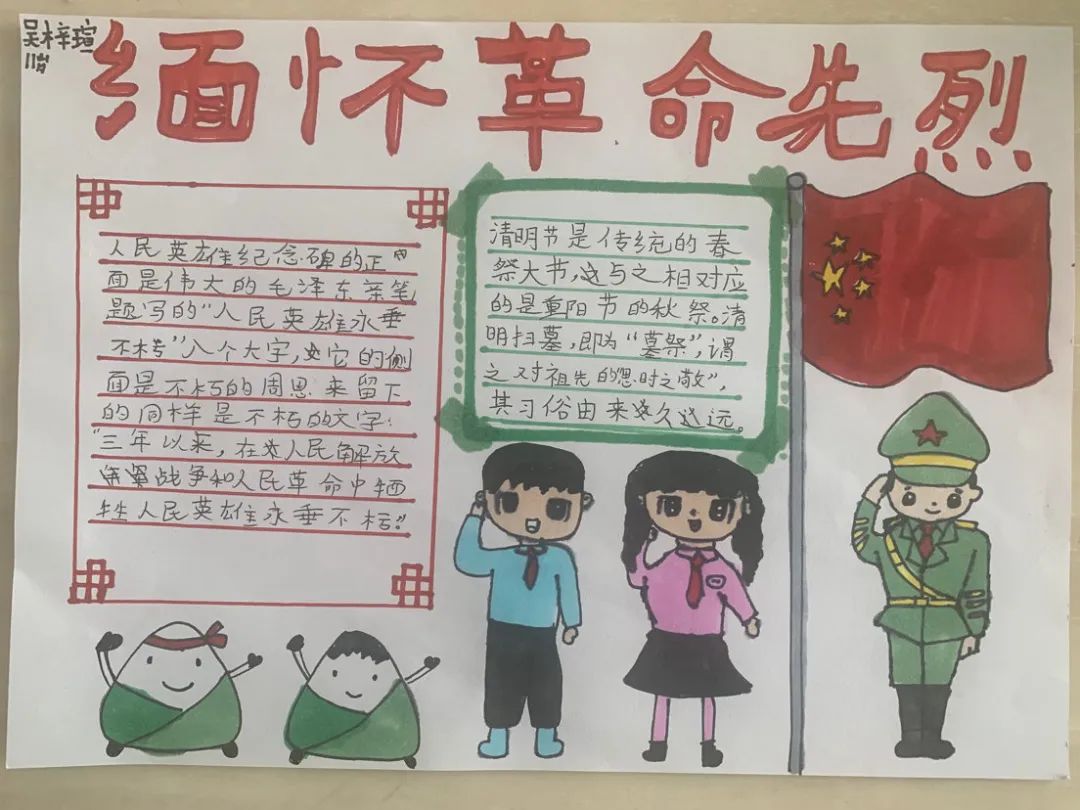 吴梓瑄
11岁
缅怀革命先烈
人民英雄纪念碑的正中
面是伟大的毛泽东亲笔
题写的"人民英雄永垂
不朽"八个大字,这它的侧
面是不朽的周恩来留下
的同样是不朽的文字:
"三年以来,在这人民解放
战争和人民革命中牺
牲人民英雄永垂不朽。"
清明节是传统的春
祭大节,这与之相对应
的是重阳节的秋祭。清
明扫墓,即为"墓祭",谓
之对祖先的"思时之敬",
其习俗由来这久这远。